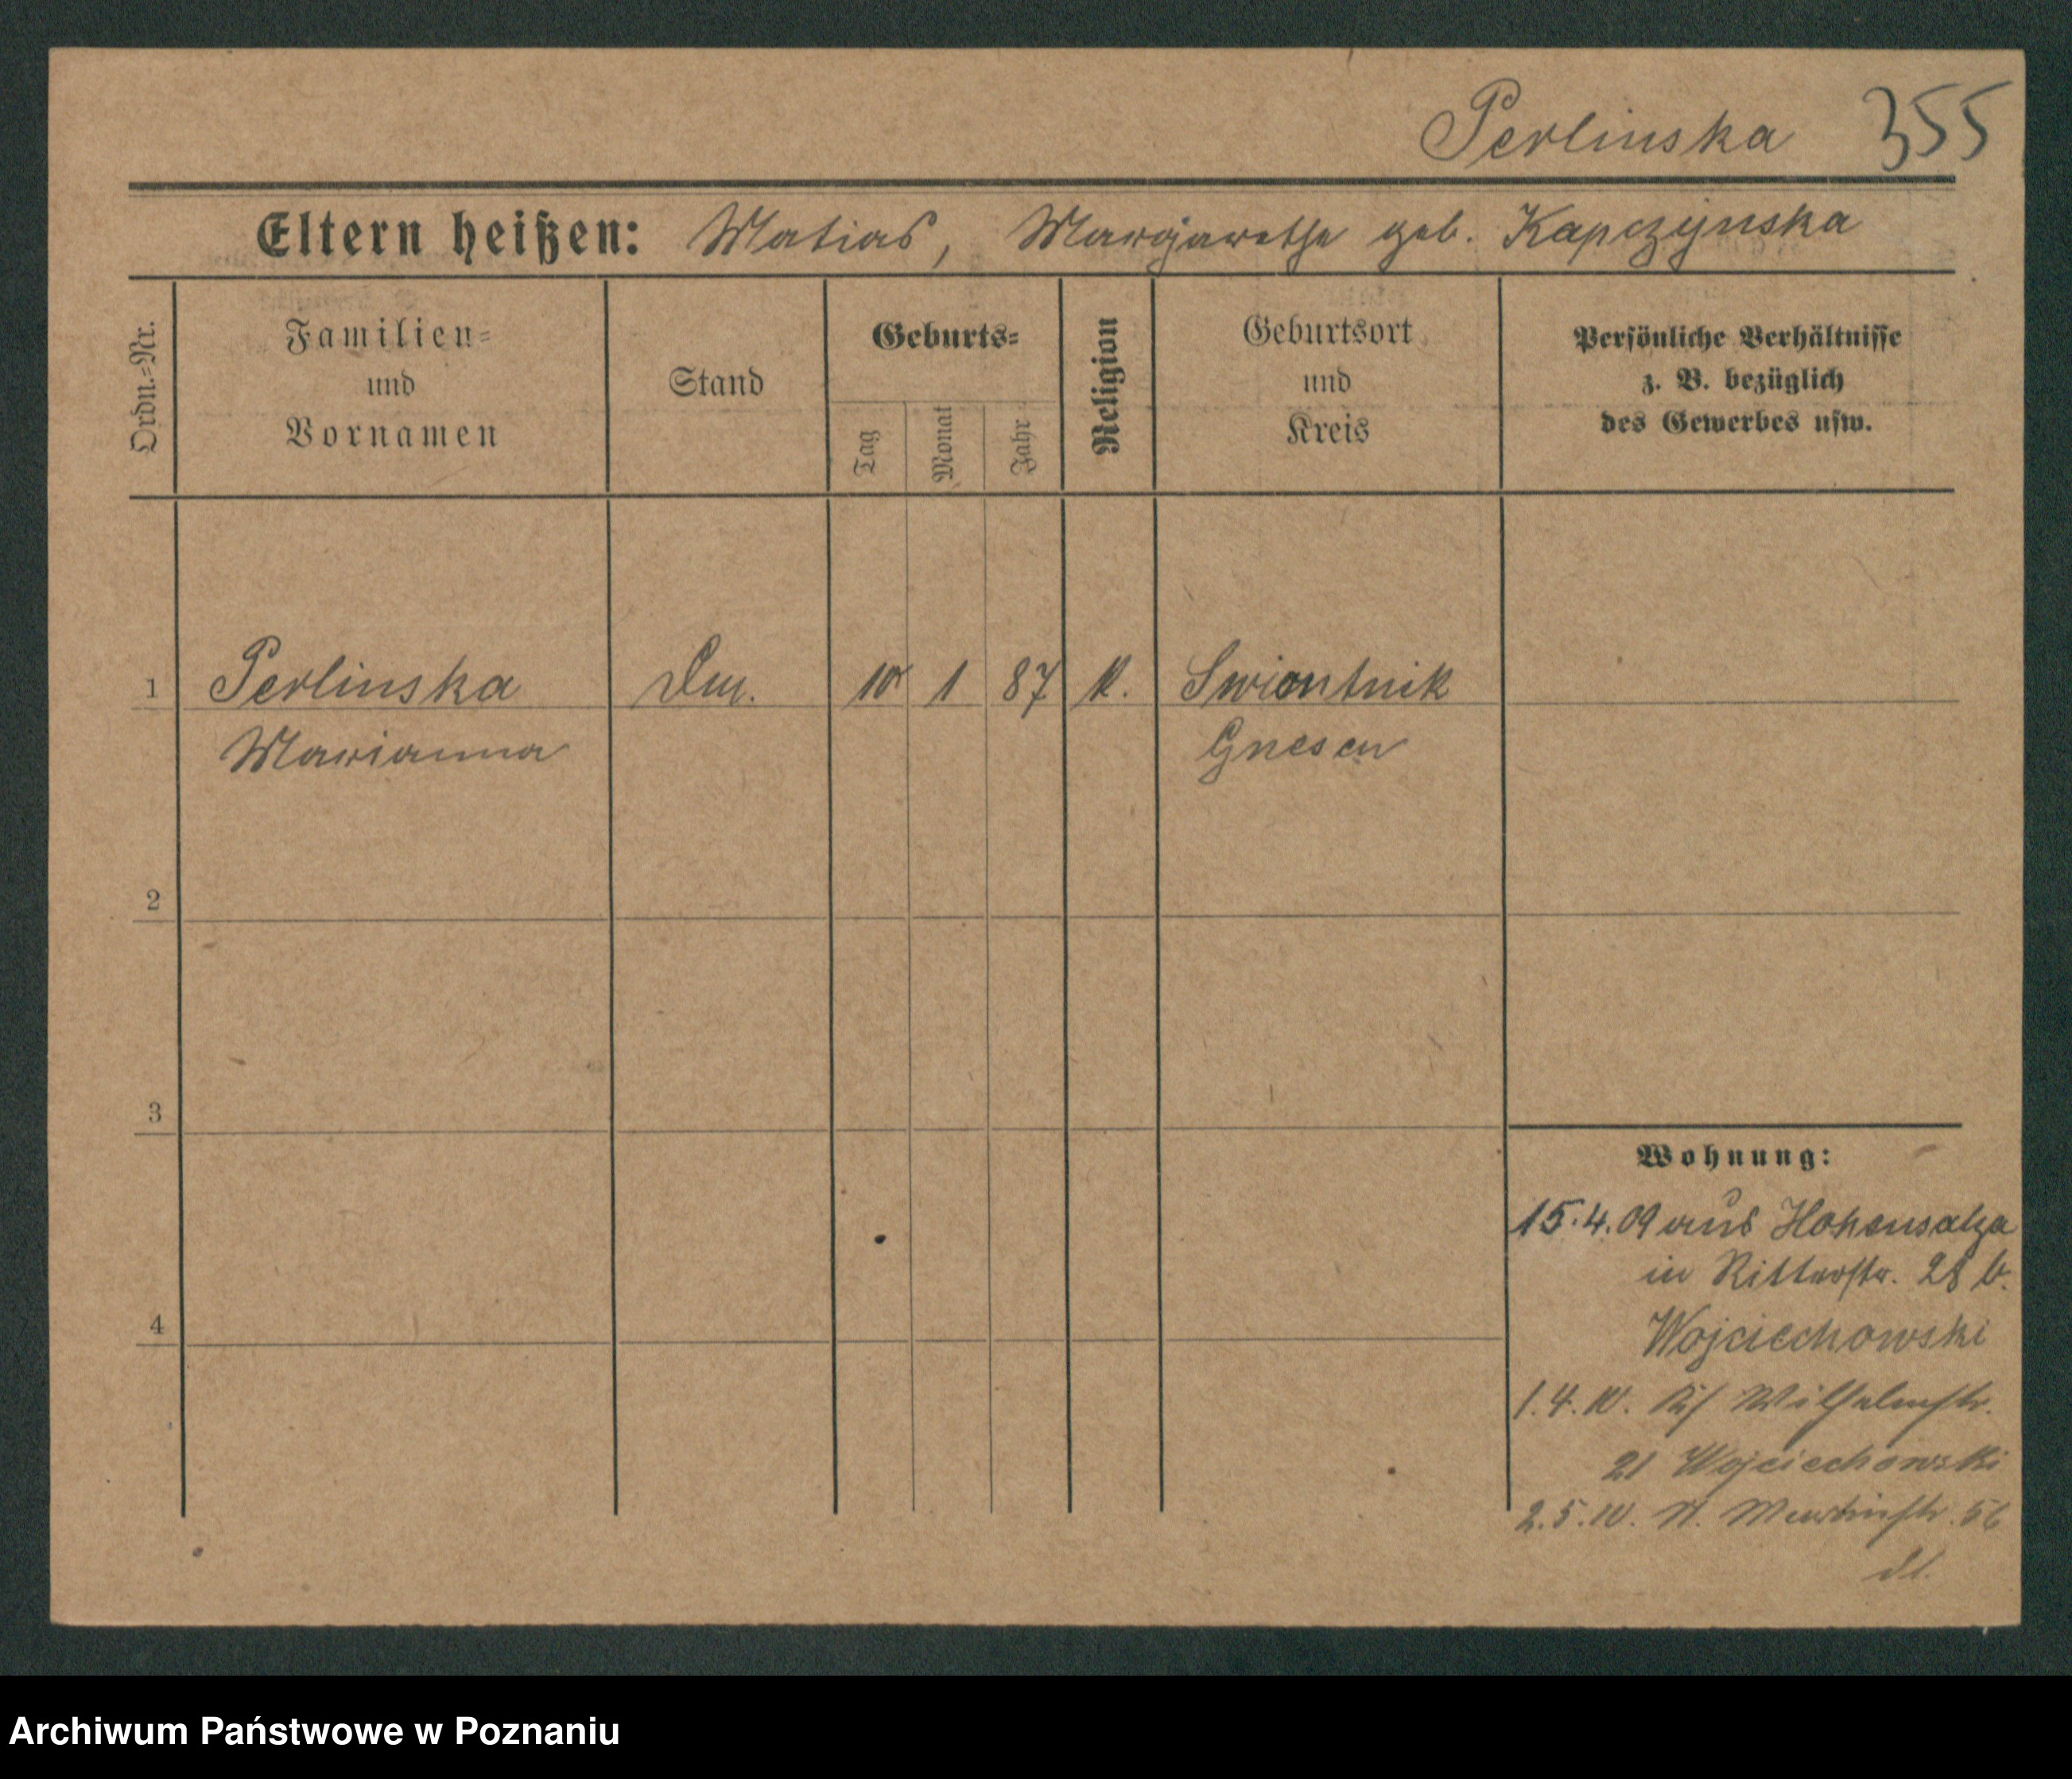 Perlinska 355
Eltern heißen: Matias, Margarethe geb. Kapczynska
Ordn.=Nr.
Familien=
und
Vornamen
Stand
Geburts=
Tag
Monat
Jahr
Religion
Geburtsort
und
Kreis
Persönliche Verhältnisse
z. B. bezüglich
des Gewerbes usw.
1 Perlinska 10 1 87 k. Swiontnik
Marianna Gnesen
2
3
4
Wohnung:
15.4.09 aus Hohensalza
in Ritterstr. 28 b.
Wojciechowski
1.4.10. Wilhelmstr.
21 Wojciechowski
2.5.10. St. Martinstr. 56
Archiwum Państwowe w Poznaniu